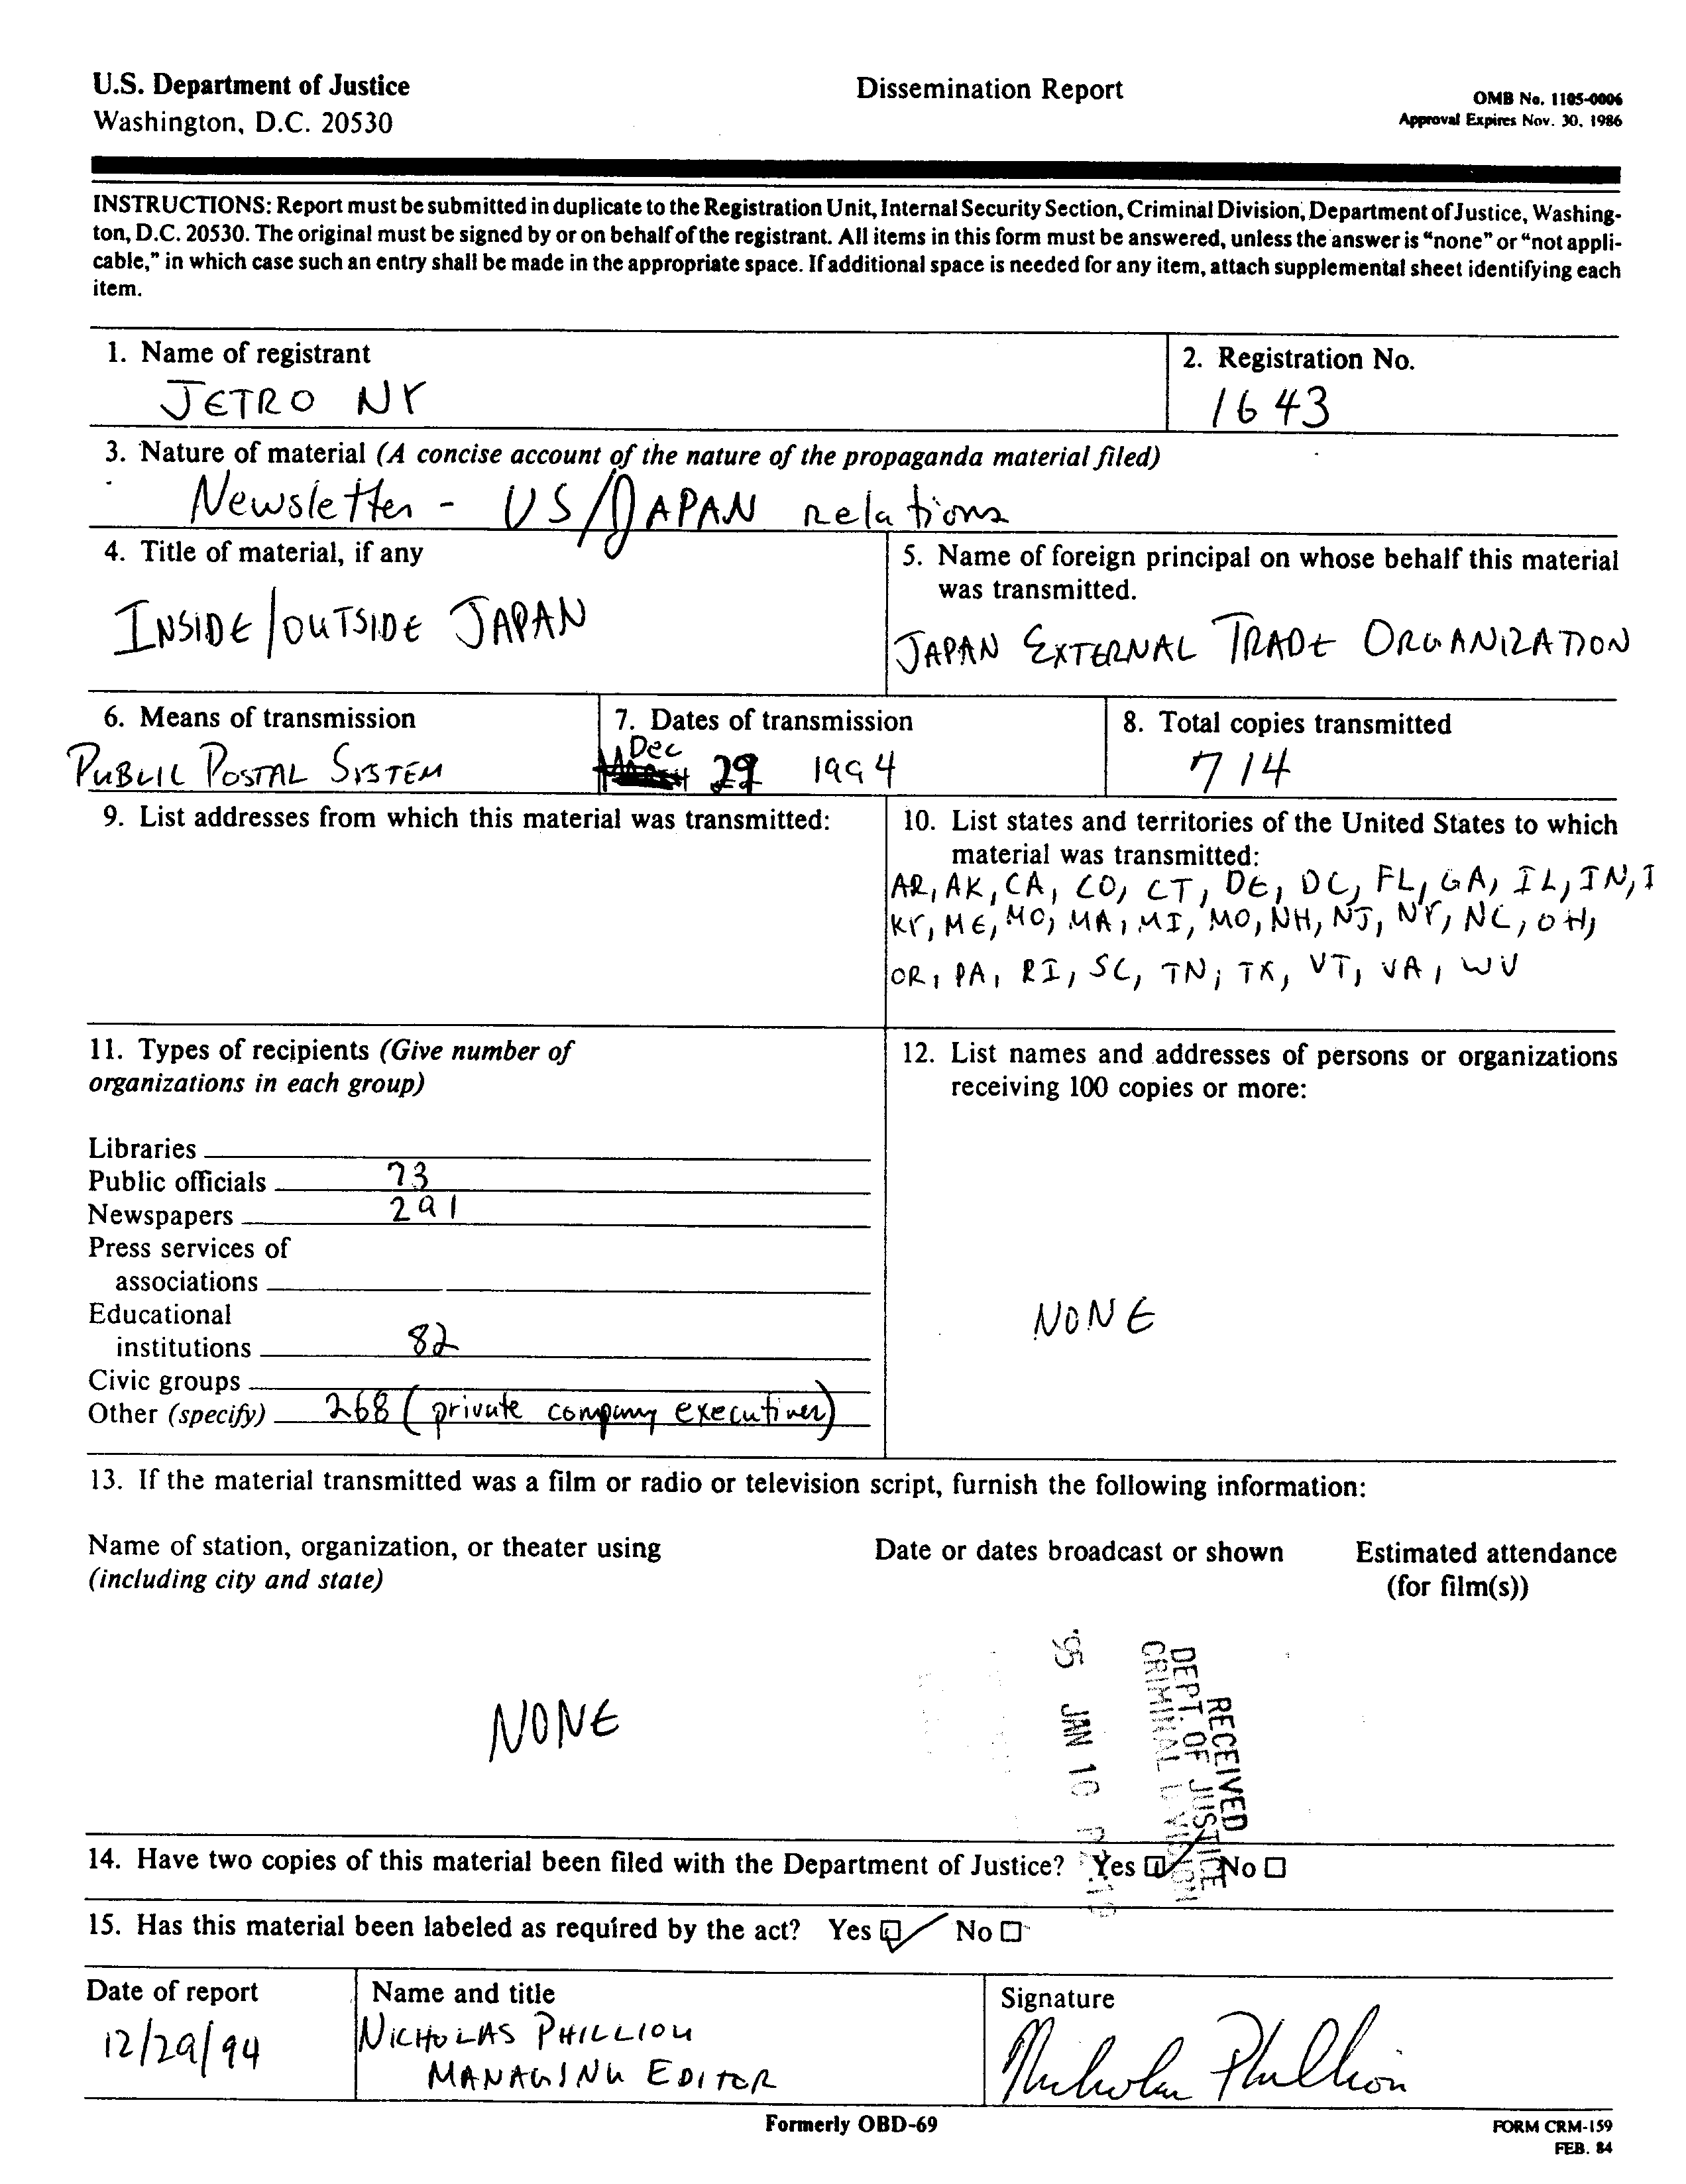 U.S. Department of Justice
Washington, D.C. 20530
Dissemination Report
OMB No. 1105-0006
Approval Expires Nov. 30, 1986
INSTRUCTIONS: Report must be submitted in duplicate to the Registration Unit, Internal Security Section, Criminal Division, Department of Justice, Washing-
ton, D.C. 20530. The original must be signed by or on behalf of the registrant. All items in this form must be answered, unless the answer is “none” or “not appli-
cable,” in which case such an entry shall be made in the appropriate space. If additional space is needed for any item, attach supplemental sheet identifying each
item.
1. Name of registrant
JETRO NY
2. Registration No.
1643
3. Nature of material (A concise account of the nature of the propaganda material filed)
Newsletter - US/JAPAN relations
4. Title of material, if any
INSIDE/OUTSIDE JAPAN
5. Name of foreign principal on whose behalf this material
was transmitted.
JAPAN EXTERNAL TRADE ORGANIZATION
6. Means of transmission
PUBLIC POSTAL SYSTEM
7. Dates of transmission
Dec
29 1994
8. Total copies transmitted
714
9. List addresses from which this material was transmitted:
10. List states and territories of the United States to which
material was transmitted:
AR, AK, CA, CO, CT, DE, DC, FL, GA, IL, IN, I
KY, ME, MO, MA, MI, MO, NH, NJ, NY, NC, OH,
OR, PA, RI, SC, TN, TX, VT, VA, WV
11. Types of recipients (Give number of
organizations in each group)
Libraries
Public officials 73
Newspapers 291
Press services of
associations
Educational
institutions 82
Civic groups
Other (specify) 268 (private company executives)
12. List names and addresses of persons or organizations
receiving 100 copies or more:
NONE
13. If the material transmitted was a film or radio or television script, furnish the following information:
Name of station, organization, or theater using
(including city and state)
Date or dates broadcast or shown
Estimated attendance
(for film(s))
NONE
RECEIVED
DEPT. OF JUSTICE
CRIMINAL DIVISION
'95 JAN 10
14. Have two copies of this material been filed with the Department of Justice? Yes No
15. Has this material been labeled as required by the act? Yes No
Date of report
12/29/94
Name and title
NICHOLAS PHILLION
MANAGING EDITOR
Signature
Nicholas Phillion
Formerly OBD-69
FORM CRM-159
FEB. 84